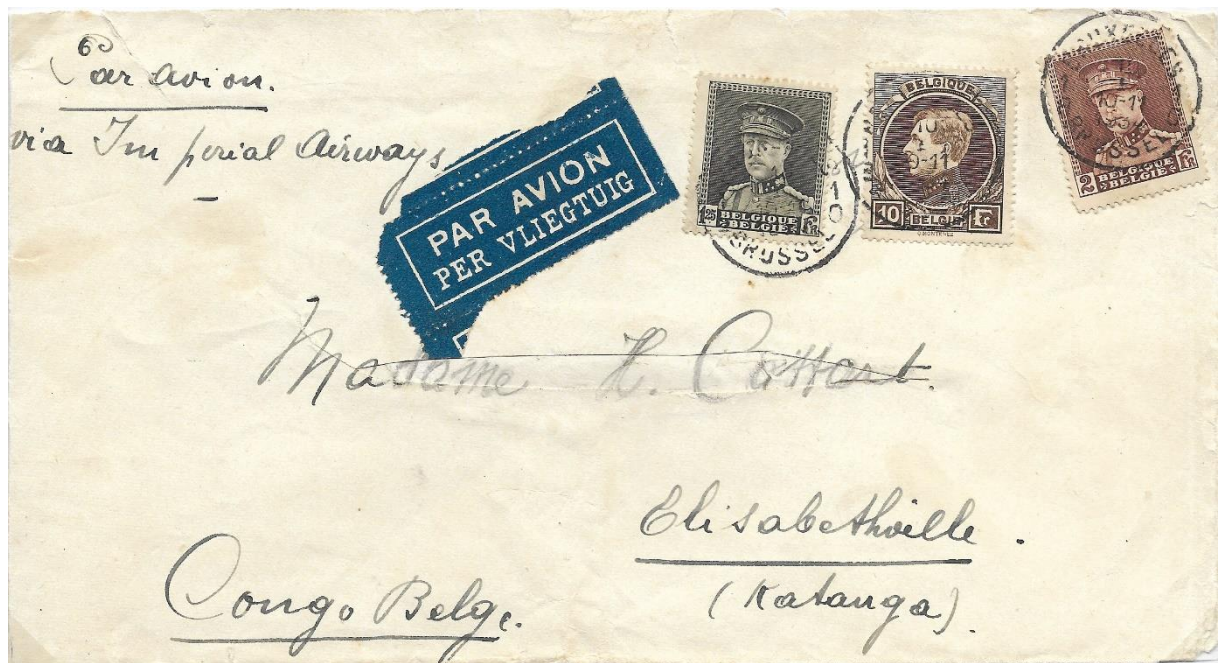 Par avion.
via Imperial Airways
PAR AVION
PER VLIEGTUIG
1.25 BELGIQUE Fr
BELGIË
BELGIQUE
10 BELGIË Fr
2 BELGIQUE Fr
BELGIË
BRUSSEL
10-11
BRUSSEL
Madame H. Cattart.
Elisabethville.
(Katanga).
Congo Belge.